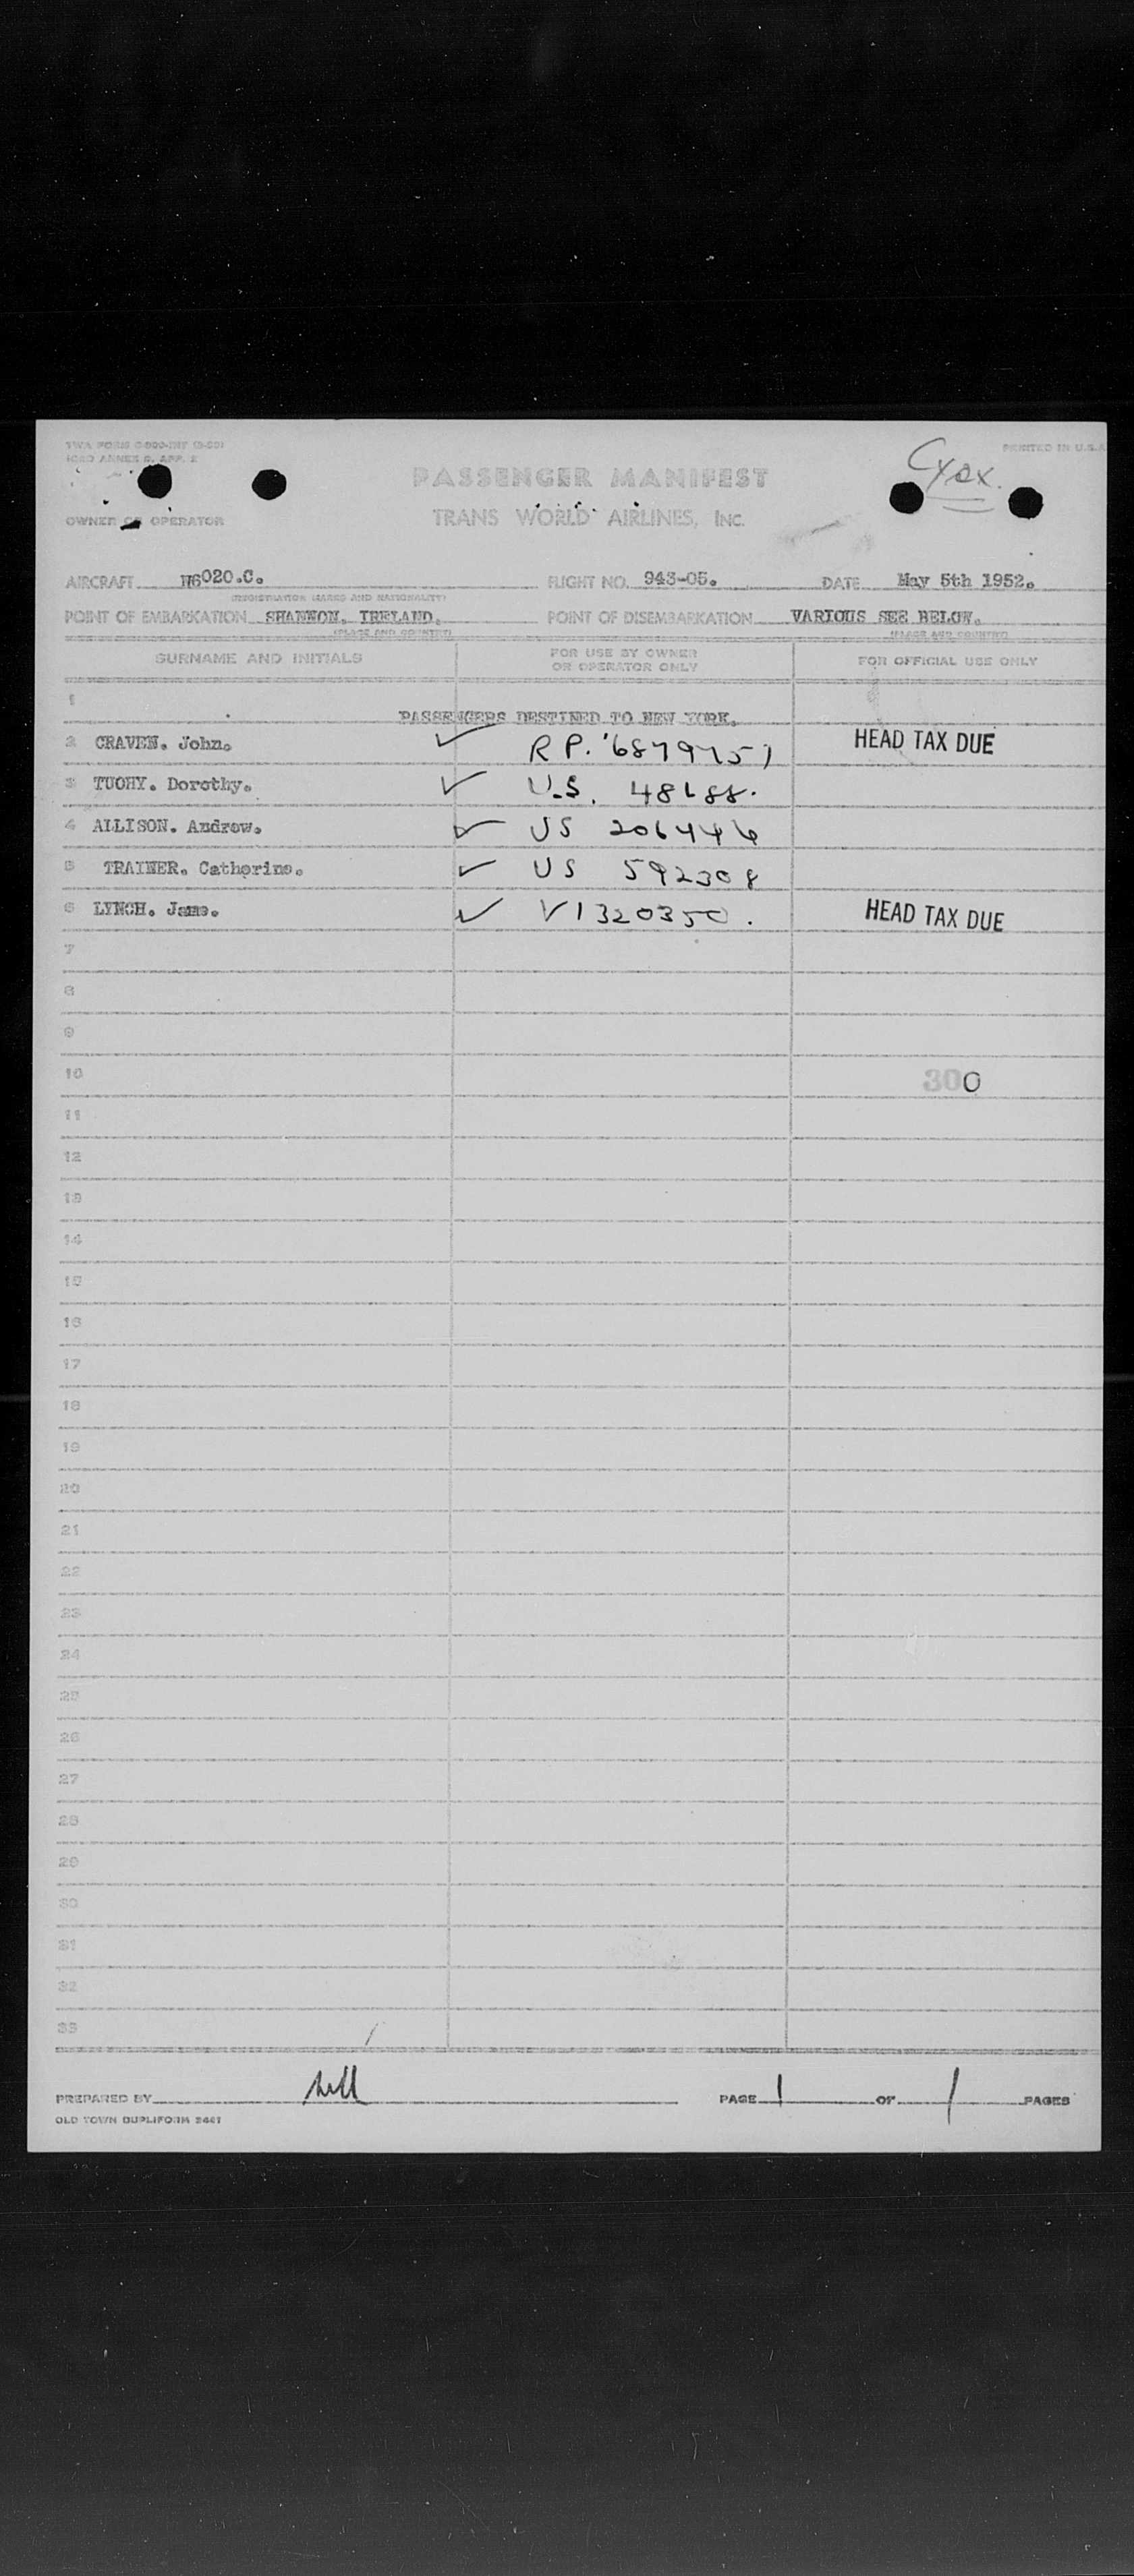 TWA FORM
ICAO ANNEX 9, APP. 2
PRINTED IN U.S.A
PASSENGER MANIFEST
OWNER OR OPERATOR
TRANS WORLD AIRLINES, INC.
AIRCRAFT N6020.C. FLIGHT NO. 943-05. DATE May 5th 1952.
(REGISTRATION MARKS AND NATIONALITY)
POINT OF EMBARKATION SHANNON. IRELAND. POINT OF DISEMBARKATION VARIOUS SEE BELOW.
(PLACE AND COUNTRY) (PLACE AND COUNTRY)
SURNAME AND INITIALS FOR USE BY OWNER OR OPERATOR ONLY FOR OFFICIAL USE ONLY
1
PASSENGERS DESTINED TO NEW YORK.
2 CRAVEN. John. ✓ R P. HEAD TAX DUE
3 TUOHY. Dorothy. ✓ U.S.
4 ALLISON. Andrew. ✓ US 206446
5 TRAINER. Catherine. ✓ US 592308
6 LYNCH. Jane. ✓ V1320350. HEAD TAX DUE
7
8
9
10 300
11
12
13
14
15
16
17
18
19
20
21
22
23
24
25
26
27
28
29
30
31
32
33
PREPARED BY PAGE 1 OF 1 PAGES
OLD TOWN DUPLIFORM 2441